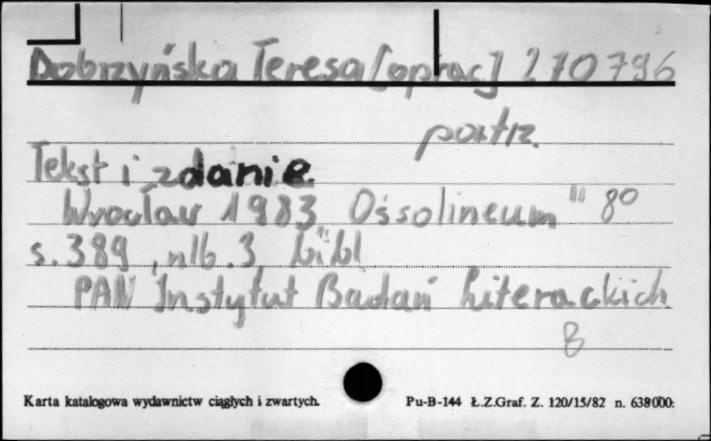 Dobrzyńska Teresa [oprac] 270796
patrz.
Tekst i zdanie.
Wrocław 1983 Ossolineum" 8°
s. 389, nlb. 3 bibl
PAN Instytut Badań Literackich
B
Karta katalogowa wydawnictw ciągłych i zwartych. Pu-B-144 Ł.Z.Graf. Z. 120/15/82 n. 638000.